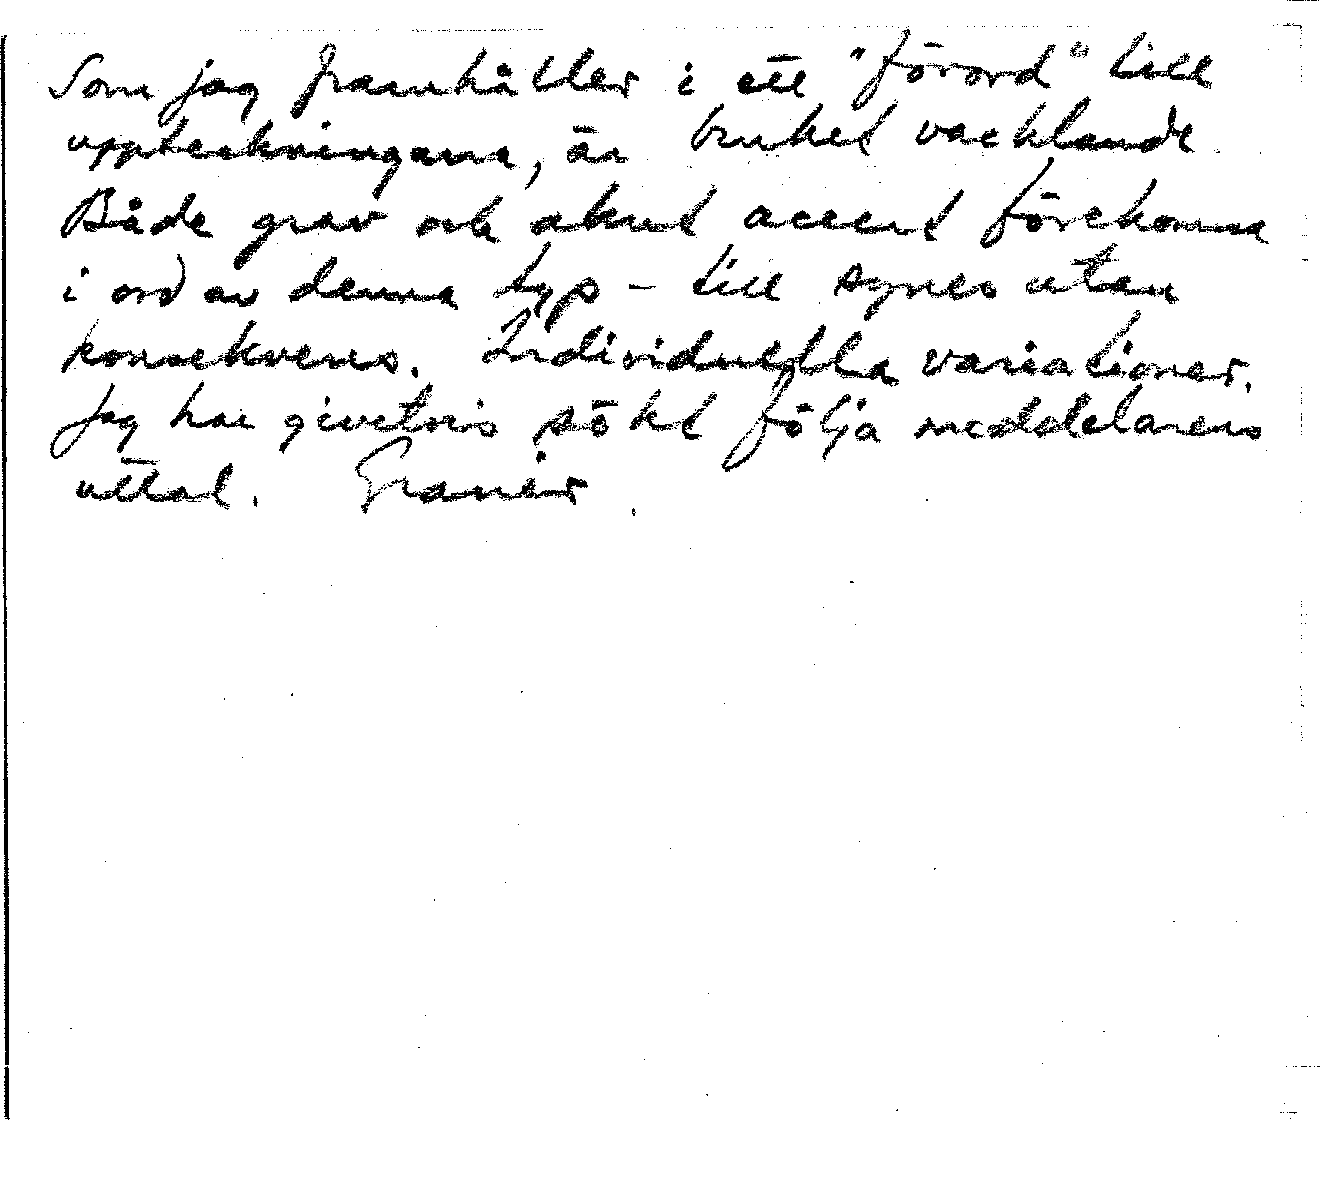 Som jag framhåller i ett "förord" till
uppteckningarna, är bruket vacklande
Både grav och akut accent förekomma
i ord av denna typ - till synes utan
konsekvens. Individuella variationer.
Jag har givetvis sökt följa meddelarens
uttal.